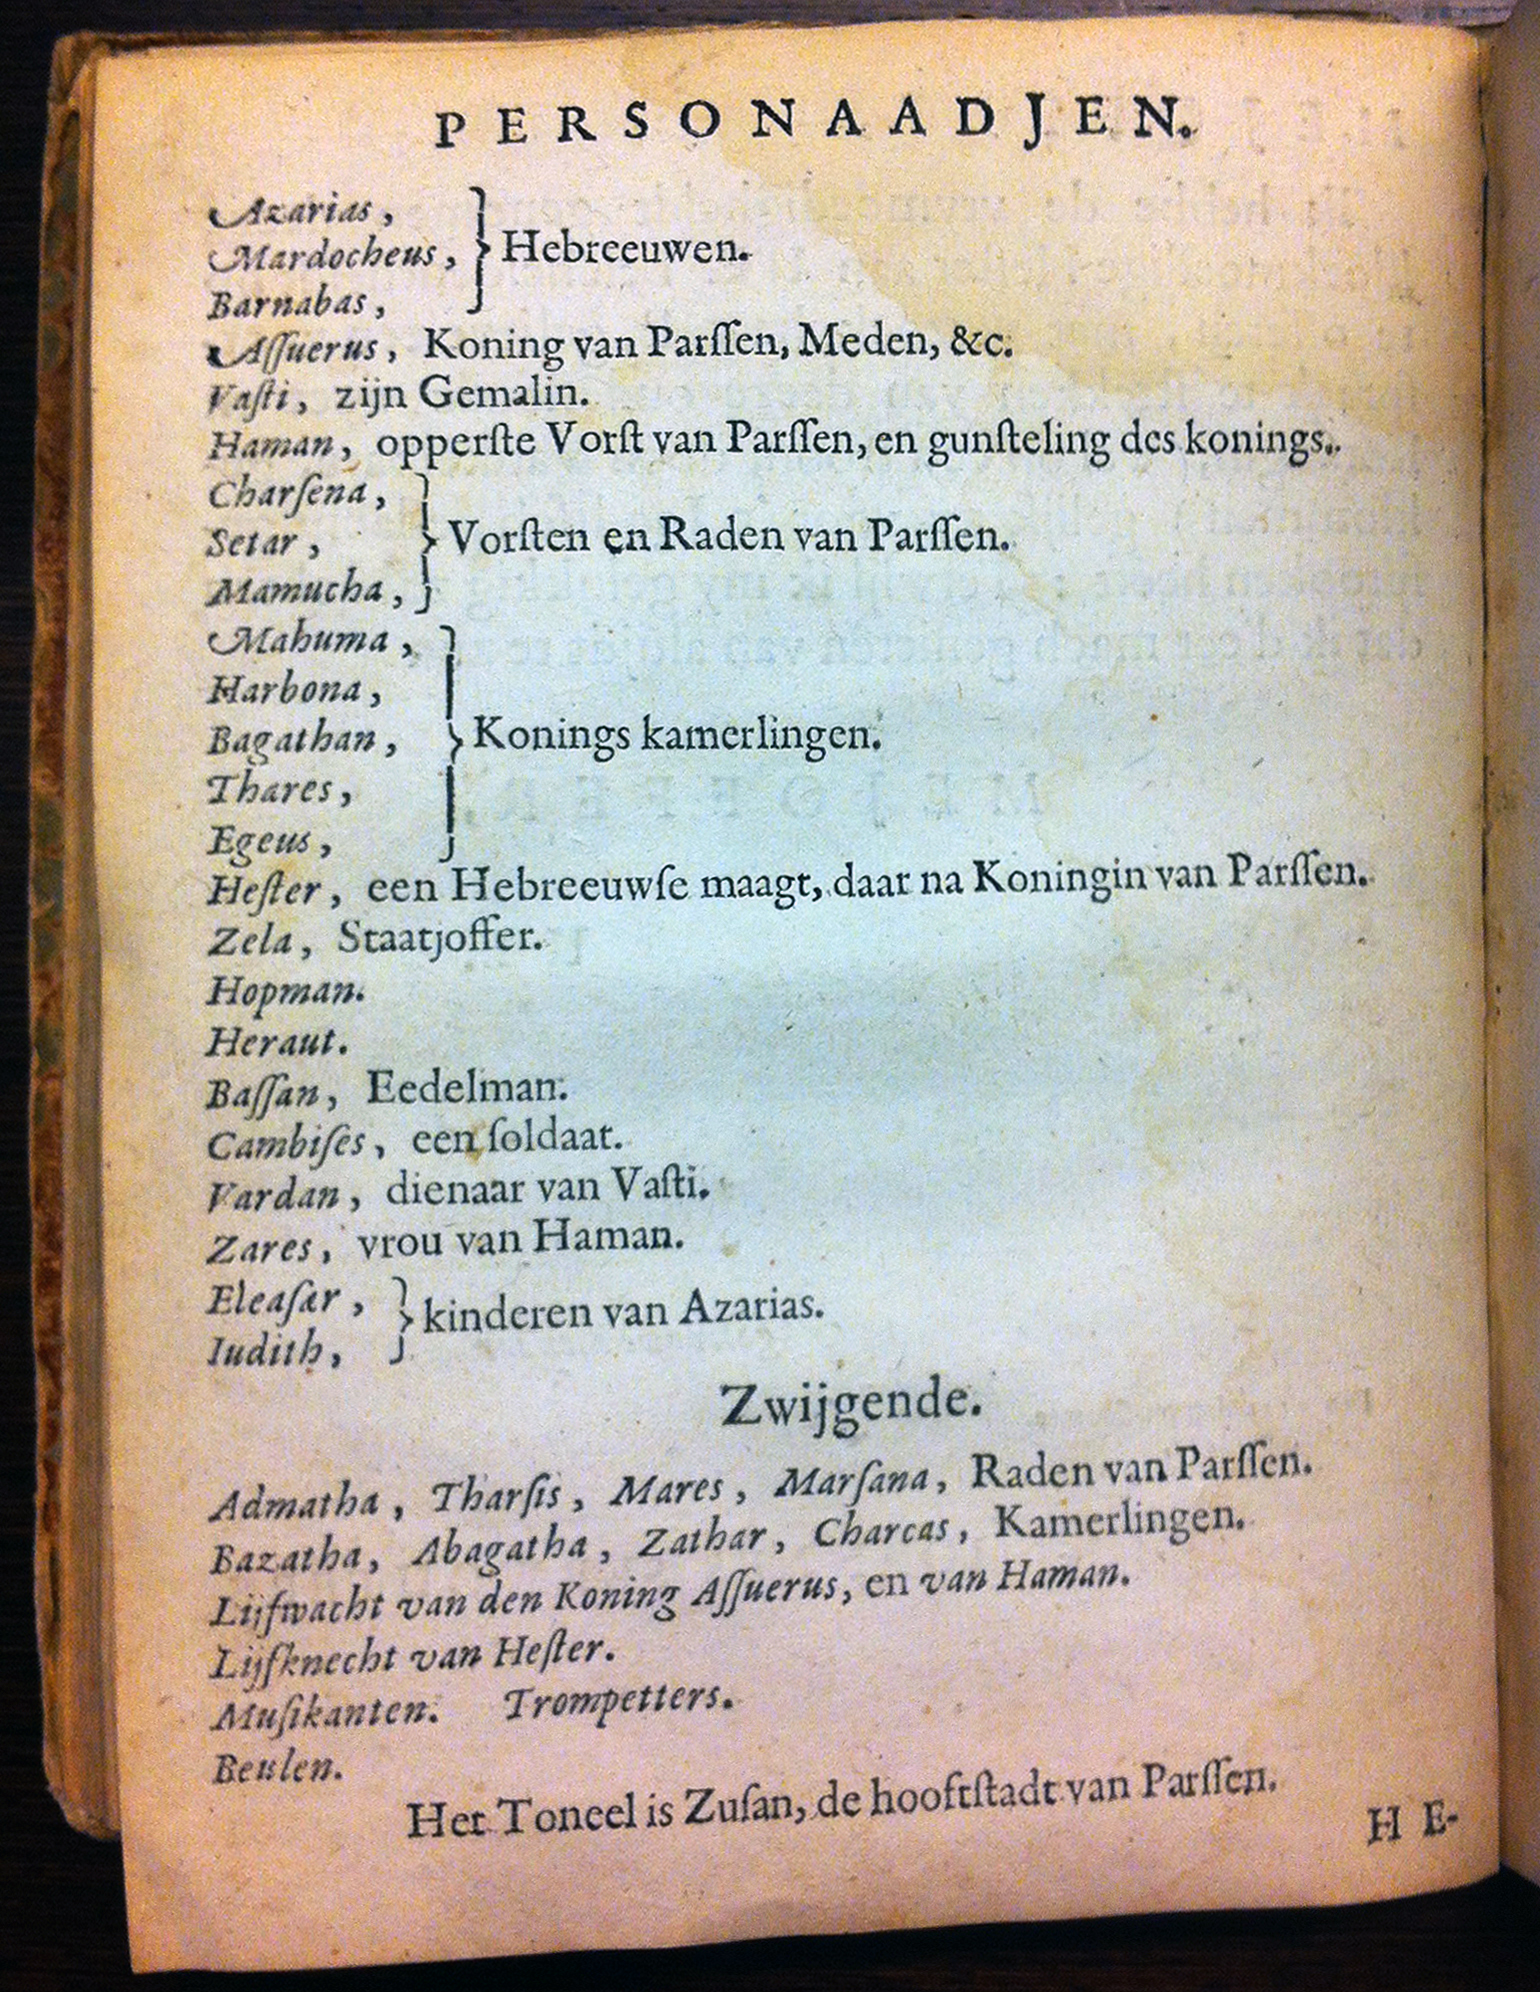 PERSONAADJEN.
Azarias,
Mardocheus, } Hebreeuwen.
Barnabas,
Aſſuerus, Koning van Parſſen, Meden, &c.
Vaſti, zijn Gemalin.
Haman, opperſte Vorſt van Parſſen, en gunſteling des konings.
Charſena,
Setar, } Vorſten en Raden van Parſſen.
Mamucha,
Mahuma,
Harbona,
Bagathan, } Konings kamerlingen.
Thares,
Egeus,
Heſter, een Hebreeuwſe maagt, daar na Koningin van Parſſen.
Zela, Staatjoffer.
Hopman.
Heraut.
Baſſan, Eedelman.
Cambiſes, een ſoldaat.
Vardan, dienaar van Vaſti.
Zares, vrou van Haman.
Eleaſar, } kinderen van Azarias.
Iudith,
Zwijgende.
Admatha, Tharſis, Mares, Marſana, Raden van Parſſen.
Bazatha, Abagatha, Zathar, Charcas, Kamerlingen.
Lijfwacht van den Koning Aſſuerus, en van Haman.
Lijfknecht van Heſter.
Muſikanten. Trompetters.
Beulen.
Het Toneel is Zuſan, de hooftſtadt van Parſſen.
HE-